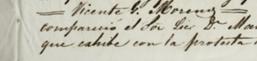 = Vicente G. Moreno =
compareció el Sor Lic. Dn. Man
que exhibe con la protesta